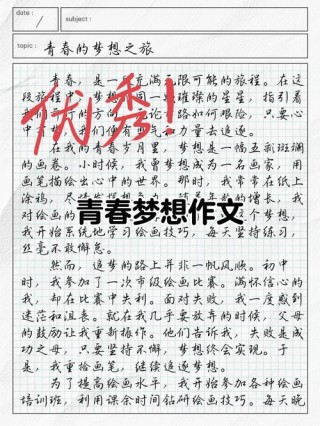 date: /
subject:
topic: 青春的梦想之旅
青春，是一 充满 限可能的旅程。在这
段旅程 梦想 同一 璀璨的星星，指引着
我们 的方向。无论 路如何艰险，只要心
中 梦 我们便有 气 力量去追逐。
优秀！
在我的青春岁月里，梦想是一幅五彩斑斓
的画卷。小时候，我曾梦想成为一名画家，用
画笔描绘出心中的世界。那时，我常常在纸上
涂鸦，尽 的增长，我
对绘画的 这个梦想，
青春梦想作文
我开始系统地学习绘画技巧，每天坚持练习，
丝毫不敢懈怠。
然而，追梦的路上并非一帆风顺。初中
时，我参加了一次市级绘画比赛。满怀信心的
我，却在比赛中失利。面对失败，我一度感到
迷茫和沮丧。就在我几乎要放弃的时候，父母
的鼓励让我重新振作。他们告诉我，失败是成
功之母，只要坚持不懈，梦想终会实现。于
是，我重拾画笔，继续追逐梦想。
为了提高绘画水平，我开始参加各种绘画
培训班，利用课余时间钻研绘画技巧。每天晚